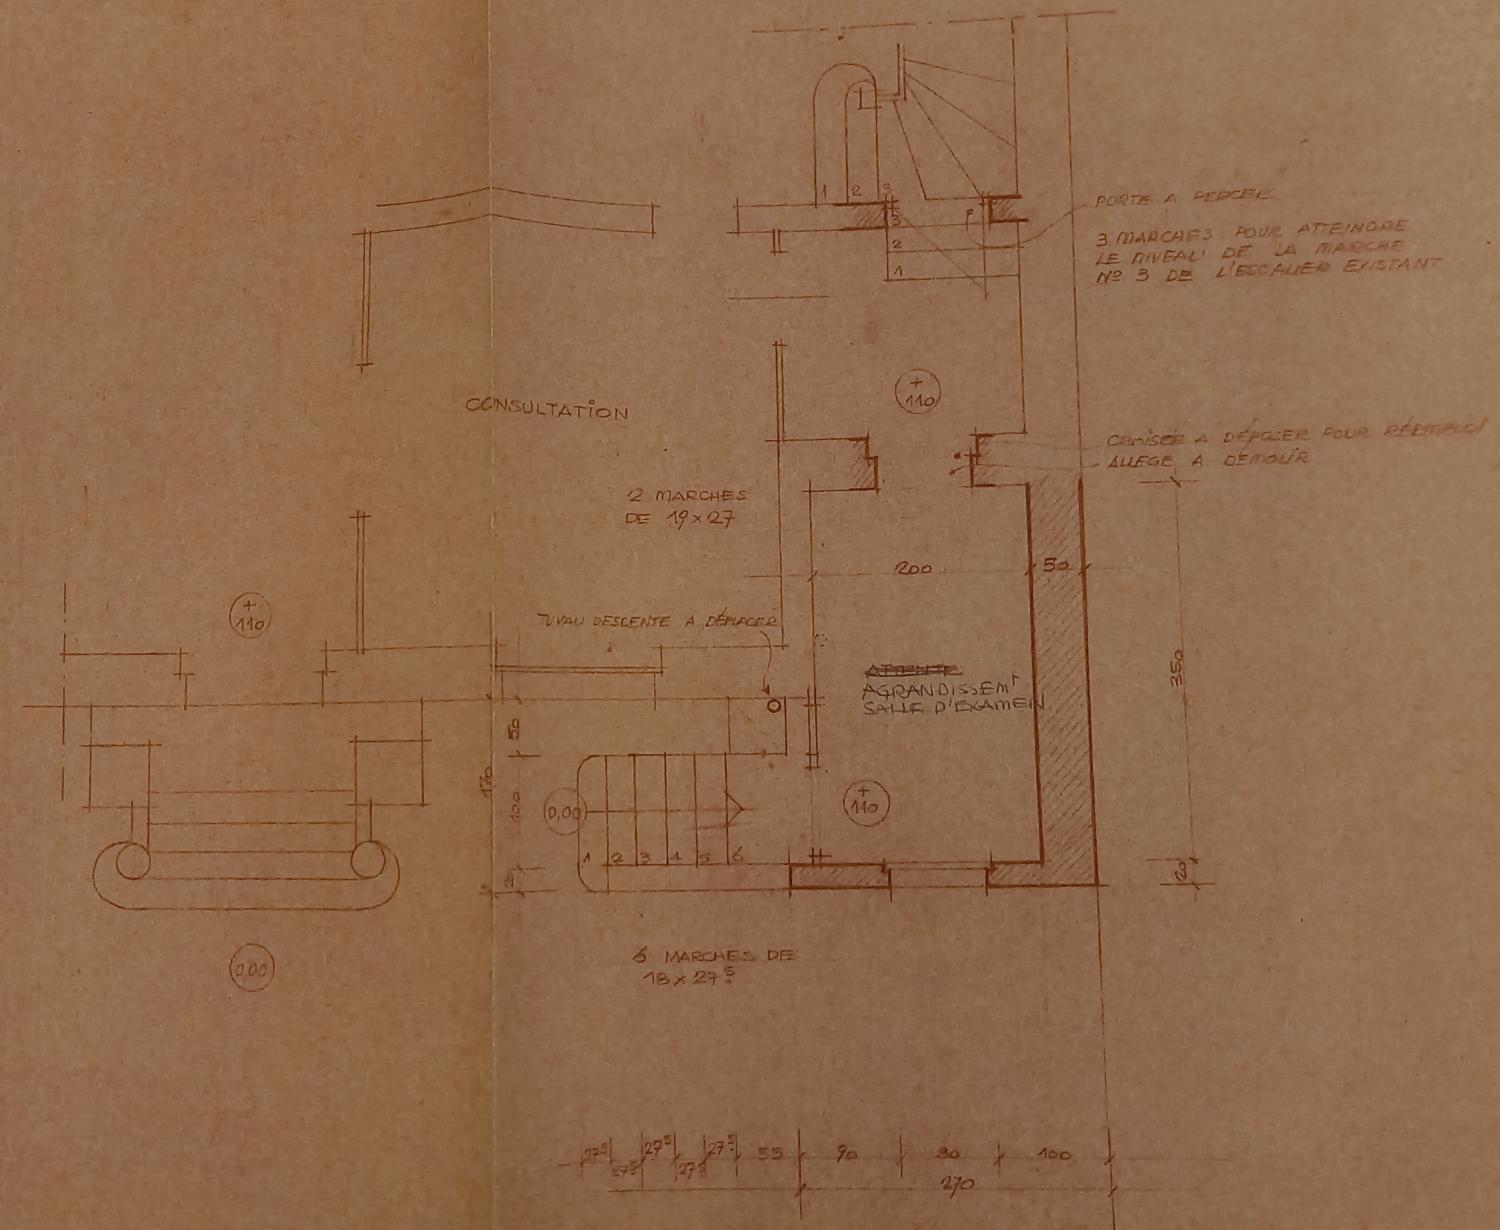 1 2 3
3
2
1
PORTE A PERCER
3 MARCHES POUR ATTEINDRE
LE NIVEAU DE LA MARCHE
Nº 3 DE L'ESCALIER EXISTANT
+
110
CONSULTATION
CROISÉE A DÉPOSER POUR RÉEMPLOI
ALLEGE A DÉMOLIR
2 MARCHES
DE 19 x 27
200
50
+
110
TUYAU DESCENTE A DÉPLACER
350
ATTENTE
AGRANDISSEMT
SALLE D'EXAMEN
50
170
100
0,00
+
110
1 2 3 4 5 6
20
20
0.00
6 MARCHES DE
18 x 27⁵
27⁵ 27⁵ 27⁵ 27⁵ 27⁵ 55 90 80 100
270